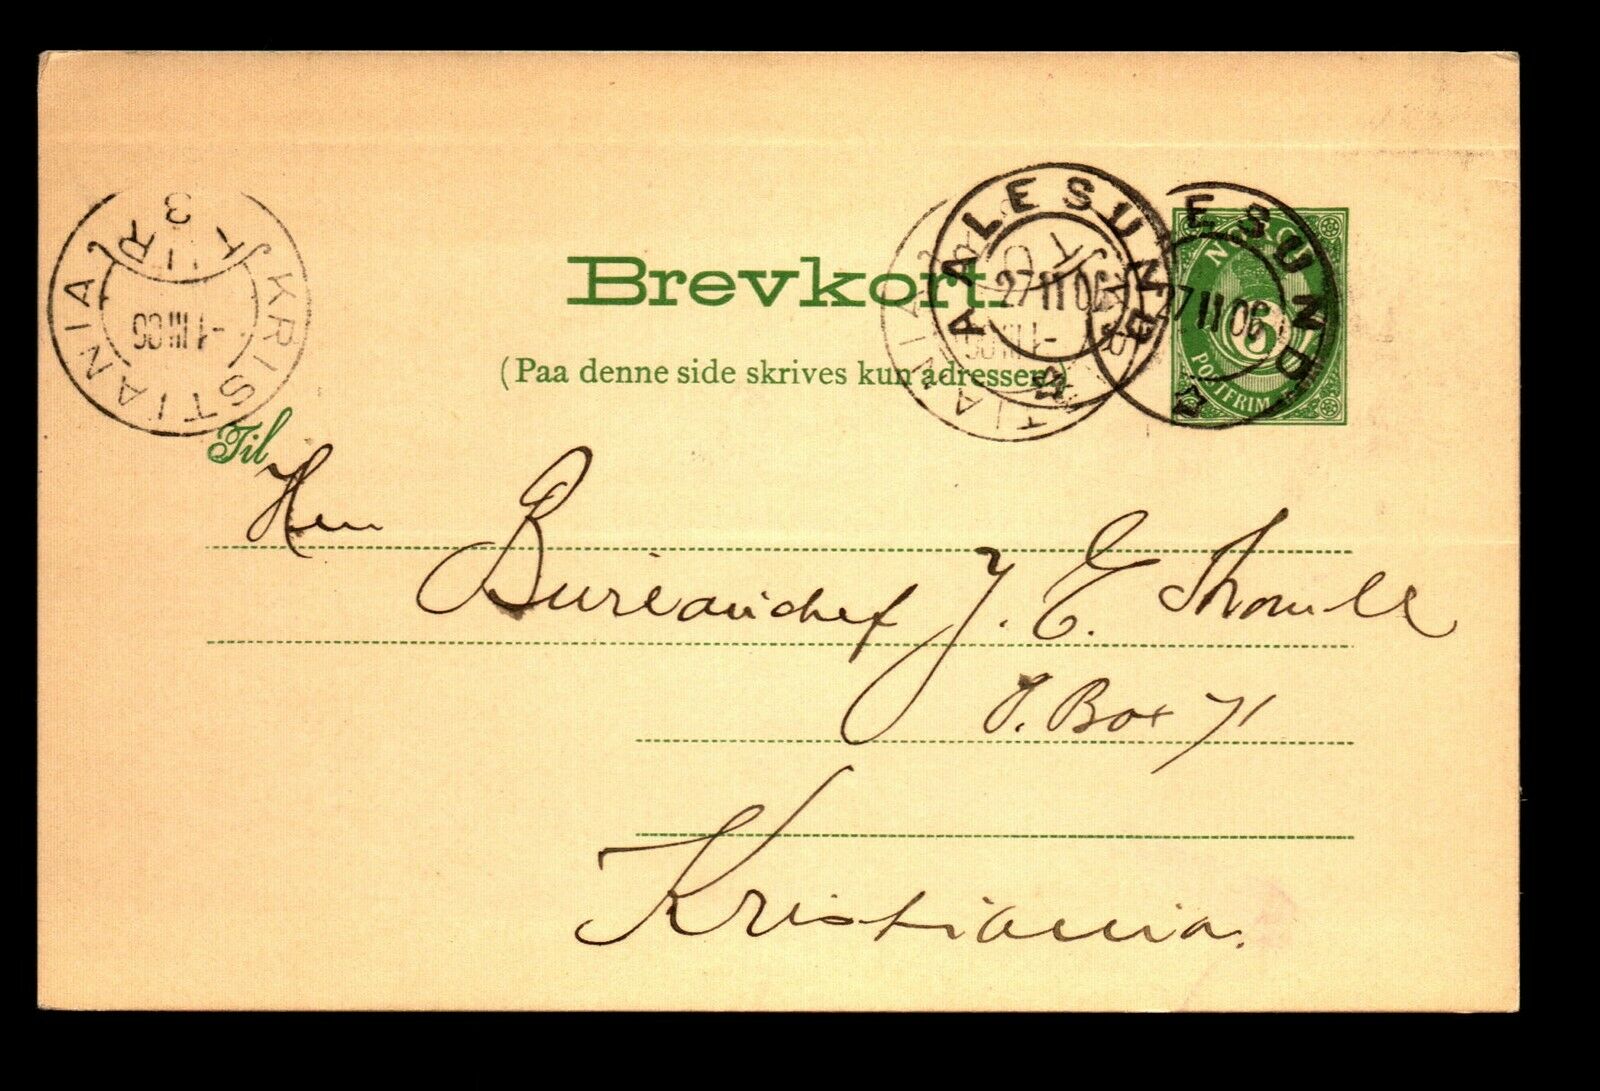 Brevkort.
(Paa denne side skrives kun adressen.)
AALESUND
27 II 06
ESUND
27 II 06
5
POSTFRIM
KRISTIANIA
-1 III 06
3
TIANIA
-1 III 06
Til
Herr
Bureauchef J. E. Thomle
P. Box 71
Kristiania.